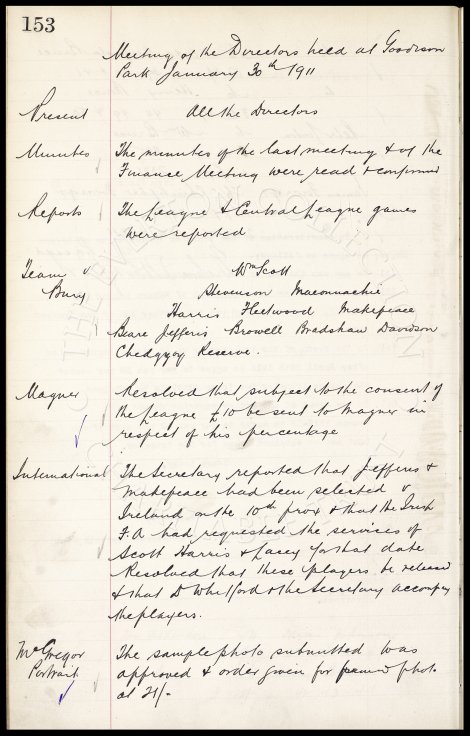 153
Meeting of the Directors held at Goodison
Park January 30th 1911
Present All the Directors
Minutes The minutes of the last meeting & of the
Finance Meeting were read & confirmed
Reports The League & Central League games
were reported
Team v Wm Scott
Bury Stevenson Maconnachie
Harris Fleetwood Makepeace
Beare Jefferis Browell Bradshaw Davidson
Chedgzoy Reserve.
Magner Resolved that subject to the consent of
the League £10 be sent to Magner in
respect of his percentage
International The Secretary reported that Jefferis &
Makepeace had been selected v
Ireland on the 10th prox & that the Irish
F.A had requested the services of
Scott Harris & Lacey for that date
Resolved that these players be released
& that D Whitford & the Secretary accompy
the players.
McGregor The sample photo submitted was
Portrait approved & order given for framed photo
at 21/-